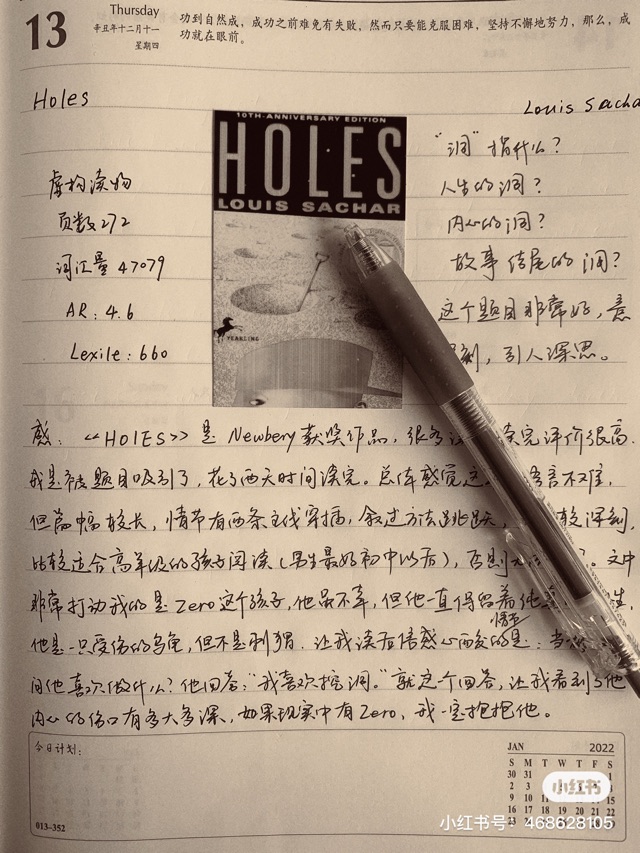 13
Thursday
辛丑年十二月十一
星期四
功到自然成，成功之前难免有失败，然而只要能克服困难，坚持不懈地努力，那么，成
功就在眼前。
Holes
Louis Sacha
10TH-ANNIVERSARY EDITION
HOLES
LOUIS SACHAR
YEARLING
虚构读物
页数272
词汇量 47079
AR：4.6
Lexile：660
“洞”指什么？
人生的洞？
内心的洞？
故事结尾的洞？
这个题目非常好，意
刻，引人深思。
感：《HOlES》是 Newbery 获奖作品，很多 读完评价很高.
我是被题目吸引了，花了两天时间读完。总体感觉这 语言不难，
但篇幅较长，情节有两条主线穿插，叙述方法跳跃， 较深刻，
比较适合高年级的孩子阅读（男生最好初中以后），否则 。文中
非常打动我的是Zero这个孩子，他虽不幸，但他一直保留着他 生，
他是一只受伤的乌龟，但不是刺猬．让我读着倍感心酸的是：当
问他喜欢做什么？他回答：“我喜欢挖洞。”就这个回答，让我看到了他
内心的伤口有多大多深，如果现实中有Zero，我一定抱抱他。
今日计划：
013-352
JAN 2022
S M T W T F S
30 31 1
2 3
9 10 11 15
16 17 18 22
小红书
小红书号：468628105